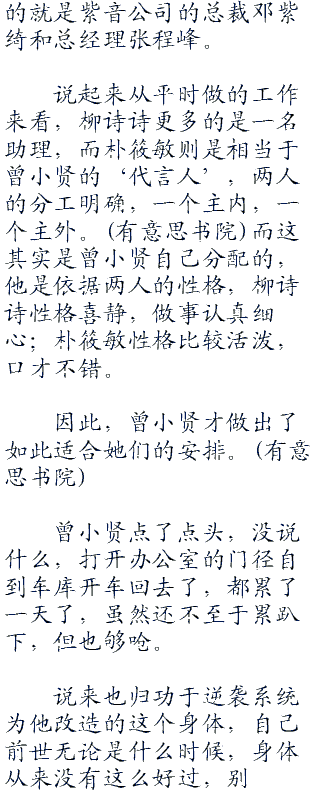 的就是紫音公司的总裁邓紫
绮和总经理张程峰。
说起来从平时做的工作
来看，柳诗诗更多的是一名
助理，而朴筱敏则是相当于
曾小贤的‘代言人’，两人
的分工明确，一个主内，一
个主外。(有意思书院)而这
其实是曾小贤自己分配的，
他是依据两人的性格，柳诗
诗性格喜静，做事认真细
心；朴筱敏性格比较活泼，
口才不错。
因此，曾小贤才做出了
如此适合她们的安排。(有意
思书院)
曾小贤点了点头，没说
什么，打开办公室的门径自
到车库开车回去了，都累了
一天了，虽然还不至于累趴
下，但也够呛。
说来也归功于逆袭系统
为他改造的这个身体，自己
前世无论是什么时候，身体
从来没有这么好过，别